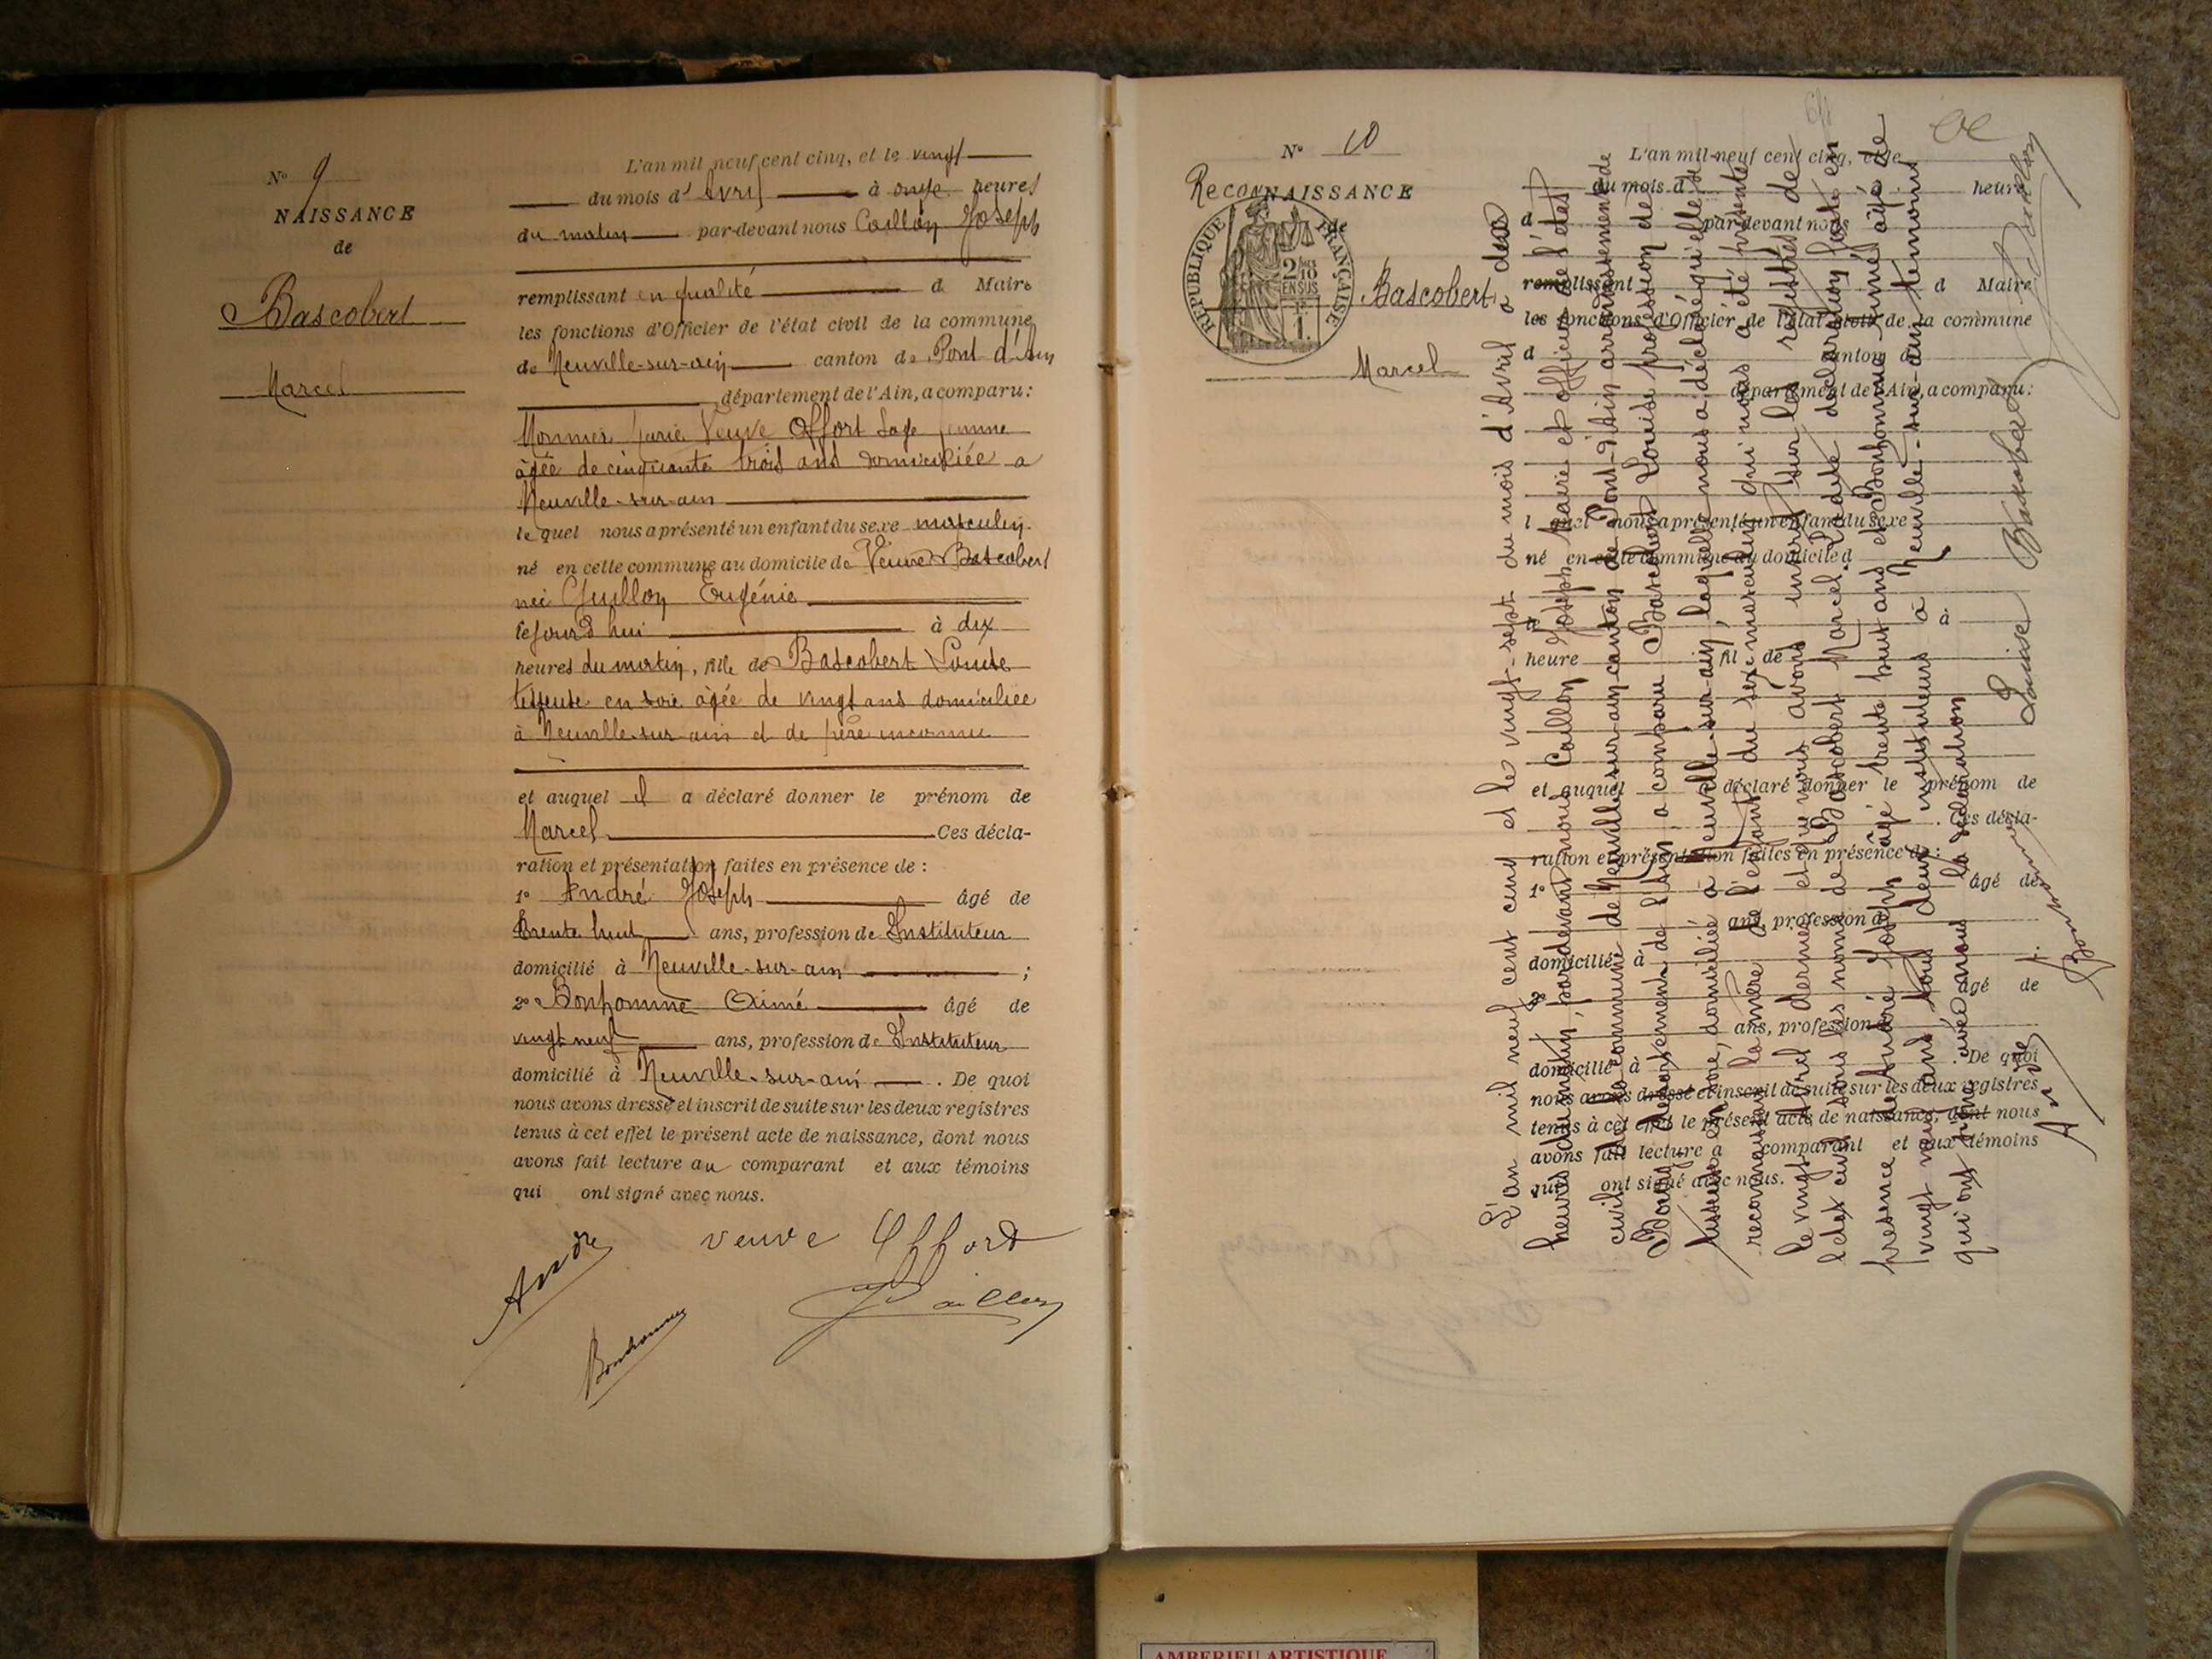 N° 9
NAISSANCE
de
Bascobert
Marcel
L'an mil neuf cent cinq, et le vingt
du mois d'Avril à onze heures
du matin par-devant nous Caillon Joseph
remplissant en qualité d Maire
les fonctions d'Officier de l'état civil de la commune
de Neuville-sur-ain canton de Pont d'Ain
département de l'Ain, a comparu :
Monnier Marie Veuve Offort Sage femme
âgée de cinquante trois ans domiciliée a
Neuville-sur-ain
lequel nous a présenté un enfant du sexe masculin
né en cette commune au domicile de Veuve Bascobert
née Guillon Eugénie
le jourd'hui à dix
heures du matin, fils de Bascobert Louise
tisseuse en soie âgée de vingt ans domiciliée
à Neuville-sur-ain et de père inconnu
et auquel il a déclaré donner le prénom de
Marcel Ces décla-
ration et présentation faites en présence de :
1° André Joseph âgé de
trente huit ans, profession de Instituteur
domicilié à Neuville-sur-ain ;
2° Bonhomme Aimé âgé de
vingt neuf ans, profession de Instituteur
domicilié à Neuville-sur-ain . De quoi
nous avons dressé et inscrit de suite sur les deux registres
tenus à cet effet le présent acte de naissance, dont nous
avons fait lecture au comparant et aux témoins
qui ont signé avec nous.
André veuve Offord
Bonhomme Caillon
N° 10
RECONNAISSANCE
de
RÉPUBLIQUE FRANÇAISE
2/10 EN SUS
Bascobert
Marcel
L'an mil neuf cent cinq, et le
du mois d heure
d par-devant nous
remplissant d Maire
les fonctions d'Officier de l'état civil de la commune
d canton d
département de l'Ain, a comparu :
l quel nous a présenté un enfant du sexe
né en cette commune au domicile d
à
heure fil de
et auquel a déclaré donner le prénom de
. Ces décla-
ration et présentation faites en présence de :
1° âgé de
ans, profession d
domicilié à ;
2° âgé de
ans, profession d
domicilié à . De quoi
nous avons dressé et inscrit de suite sur les deux registres
tenus à cet effet le présent acte de naissance, dont nous
avons fait lecture a comparant et aux témoins
qui ont signé avec nous.
L'an mil neuf cent cinq et le vingt-sept du mois d'Avril a deux
heures du matin, pardevant nous Caillon Joseph Maire et officier de l'état
civil de la commune de Neuville-sur-ain canton de Pont-d'Ain arrondissement de
Bourg département de l'Ain a comparu Bascobert Louise profession de
tisseuse en soie, domiciliée à Neuville-sur-ain, laquelle nous a déclaré qu'elle se
reconnaissait la mère de l'enfant du sexe masculin qui nous a été présenté
le vingt avril dernier et que nous avons inscrit sur les registres de
l'état civil sous les noms de Bascobert Marcel. Ladite déclaration faite en
présence de André Joseph âgé trente huit ans et Bonhomme Aimé âgé de
vingt neuf ans tous deux instituteurs à Neuville-sur-ain témoins
qui ont signé avec nous la déclaration
Louise Bascobert
André
Bonhomme
AMBERIEU ARTISTIQUE